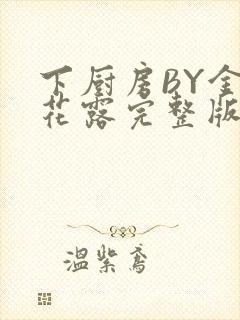 下厨房BY金
花露完整版
温紫鸢